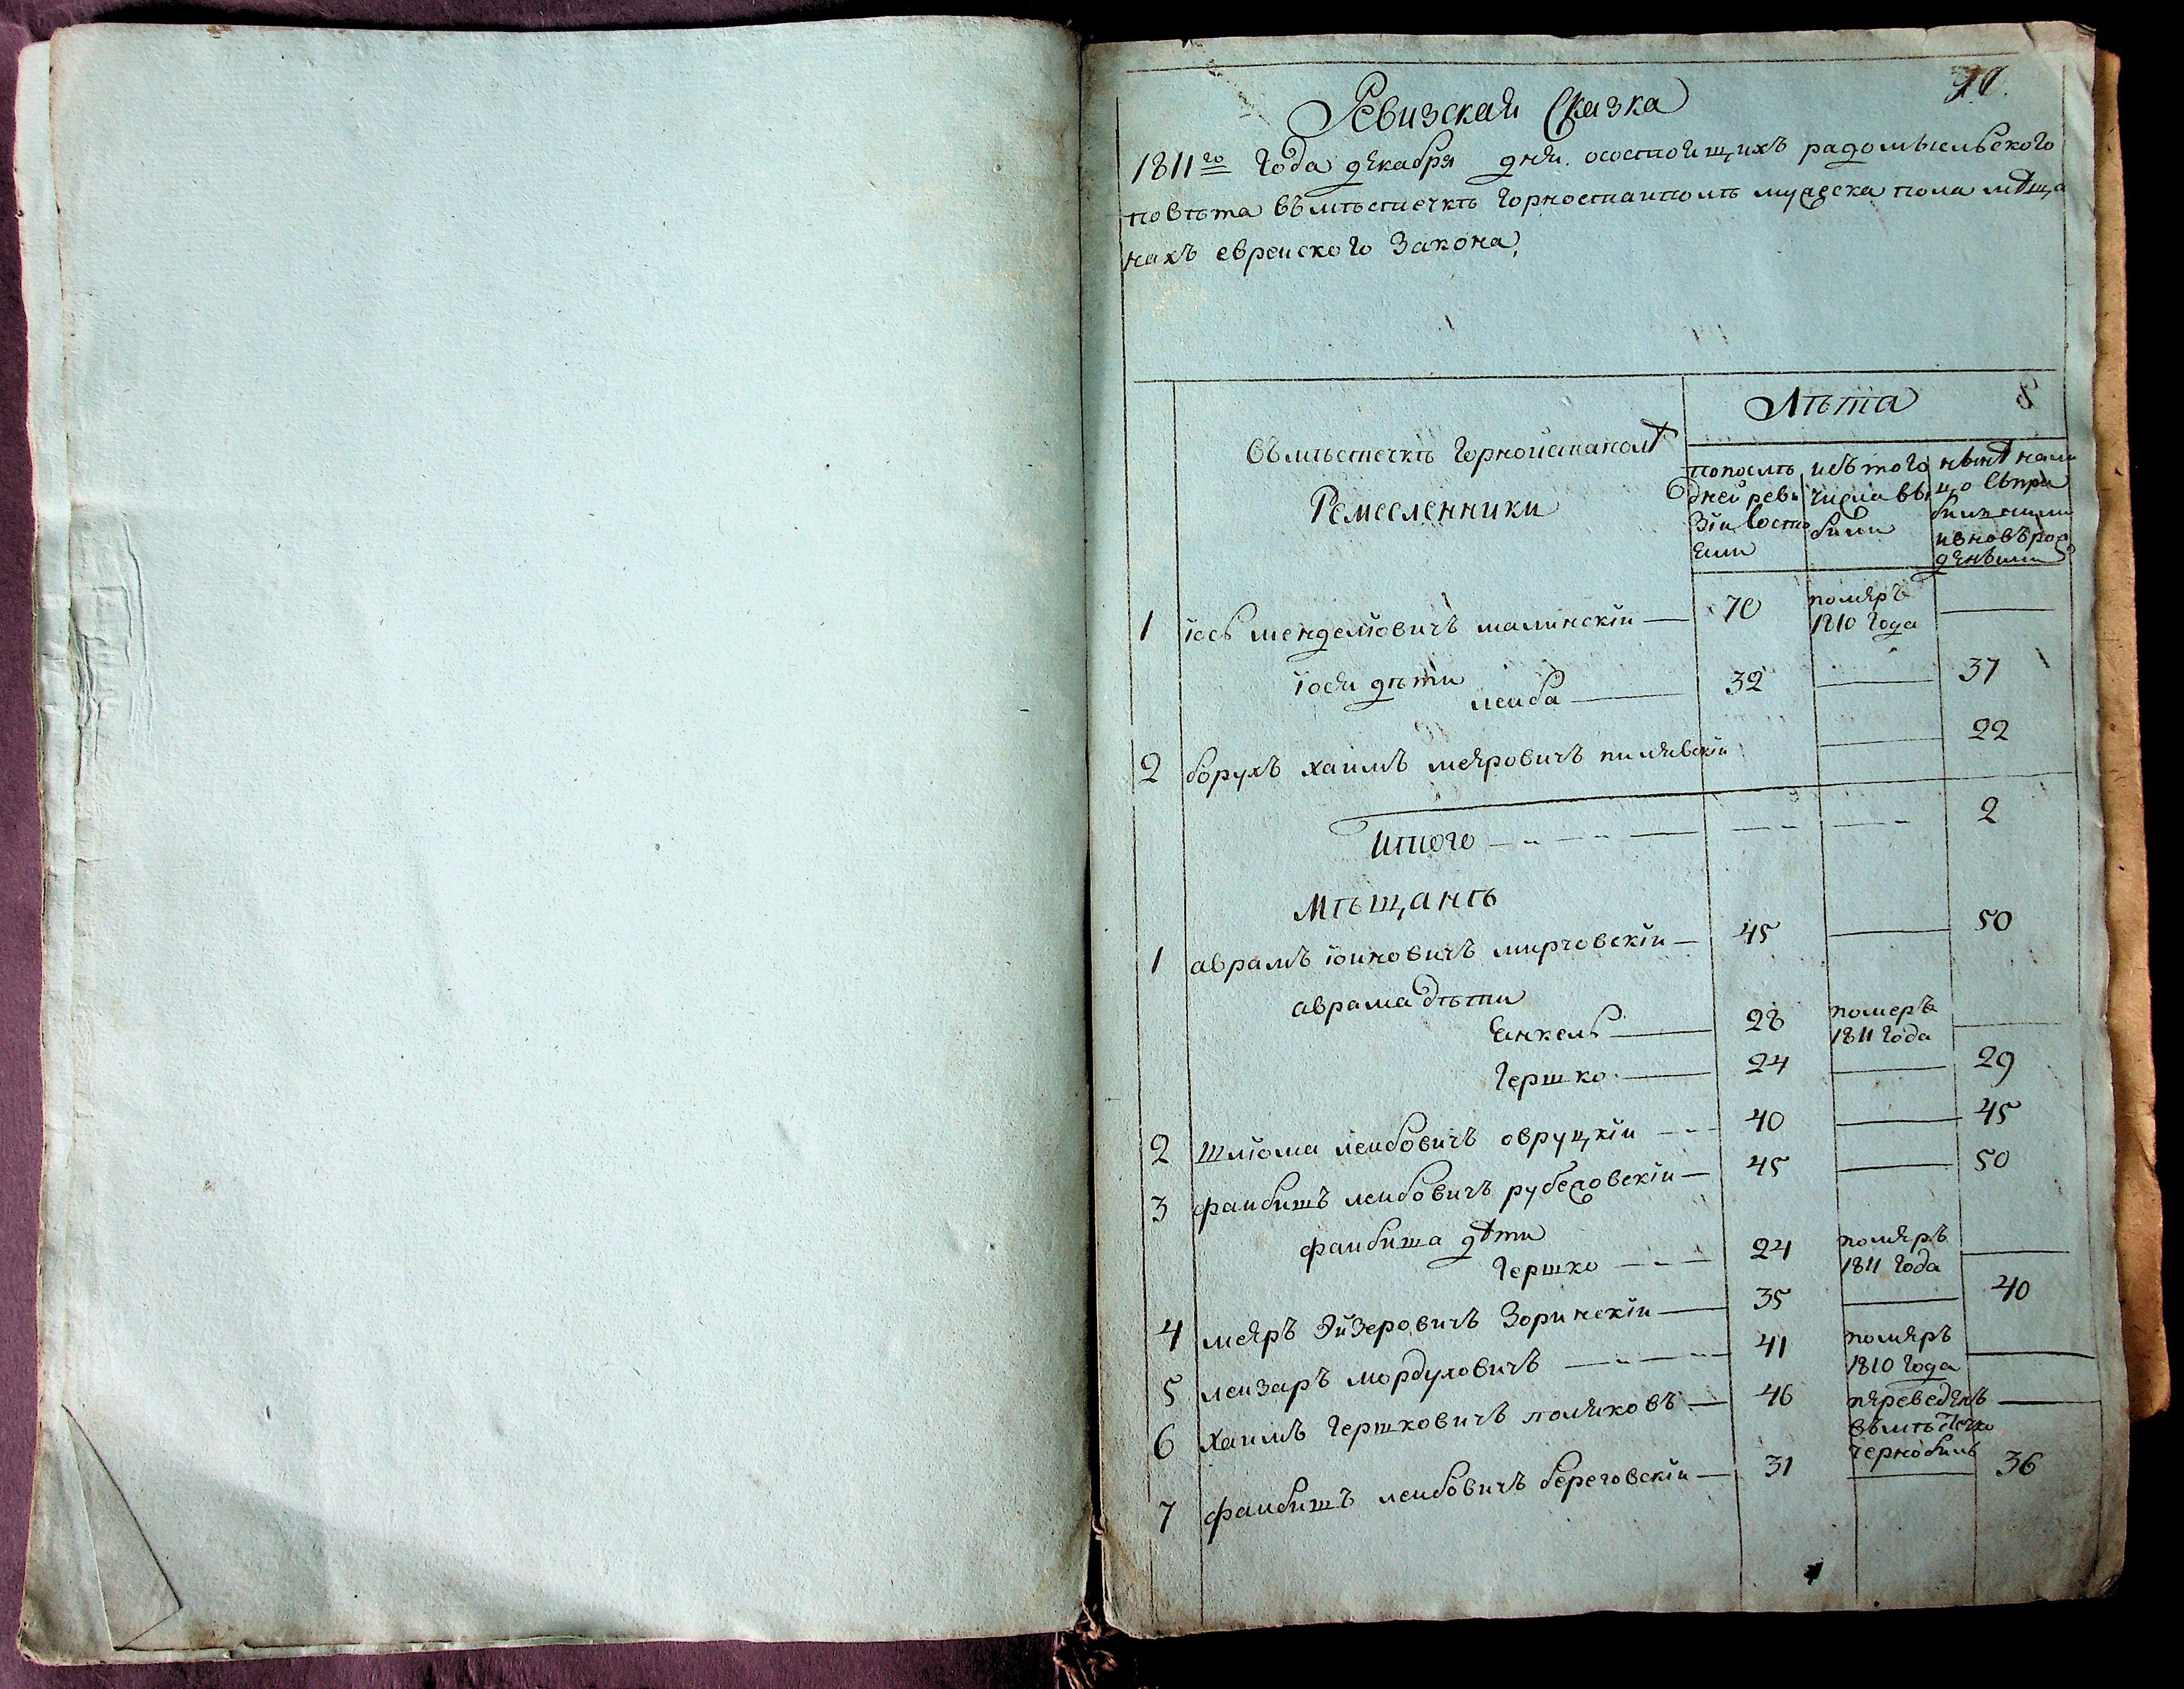 Ревизская Сказка
1811го Года декабря дня. осостоящихъ радомысльского
повѣта вмѣстечкѣ Горностаиполѣ мужеска пола мѣща
нахъ евреиского Закона,
Лѣта
вмѣстечкѣ Горностаиполѣ
Ремесленники
попослѣ
дней реви
зіи состо
яли
изъ того
числа вы
были
нынѣ нали
цо съпри
былими
ивновърож
денъими
1 іось мендельовичъ малинскіи — 70 померъ
1810 Года —
іося дѣти
леиба — 32 — 37
2 борухъ хаимъ меяровичъ пилявскіи — 22
Итого — 2
Мѣщанѣ
1 аврамъ іоиновичъ мирчовскіи — 45 — 50
аврама дѣти
Енкель — 28 померъ
1811 Года —
Гершко — 24 — 29
2 шліома леибовичъ овруцкіи — 40 — 45
3 фаибишъ леибовичъ рубежовскіи — 45 — 50
фаибиша дѣти
Гершко — 24 померъ
1811 Года —
4 меяръ Эйзеровичъ Зоринскіи — 35 — 40
5 леизаръ мордуховичъ — 41 померъ
1810 Года —
6 хаимъ Гершковичъ поляковъ — 46 переведенъ —
вмѣстечко
чернобиль
7 фаибишъ леибовичъ береговскіи — 31 — 36